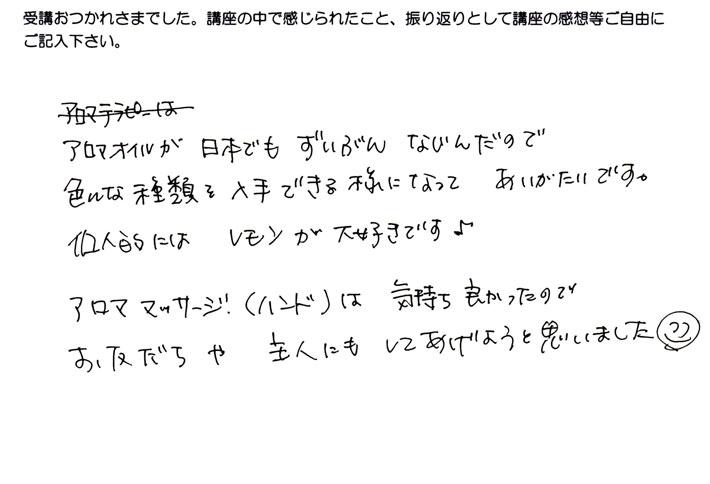 受講おつかれさまでした。講座の中で感じられたこと、振り返りとして講座の感想等ご自由に
ご記入下さい。
アロマテラピーは
アロマオイルが 日本でも ずいぶん なじんだので
色んな種類を入手できる様になって ありがたいです。
個人的には レモンが大好きです♪
アロママッサージ!(ハンド)は 気持ち良かったので
お友だちや 主人にも してあげようと思いました